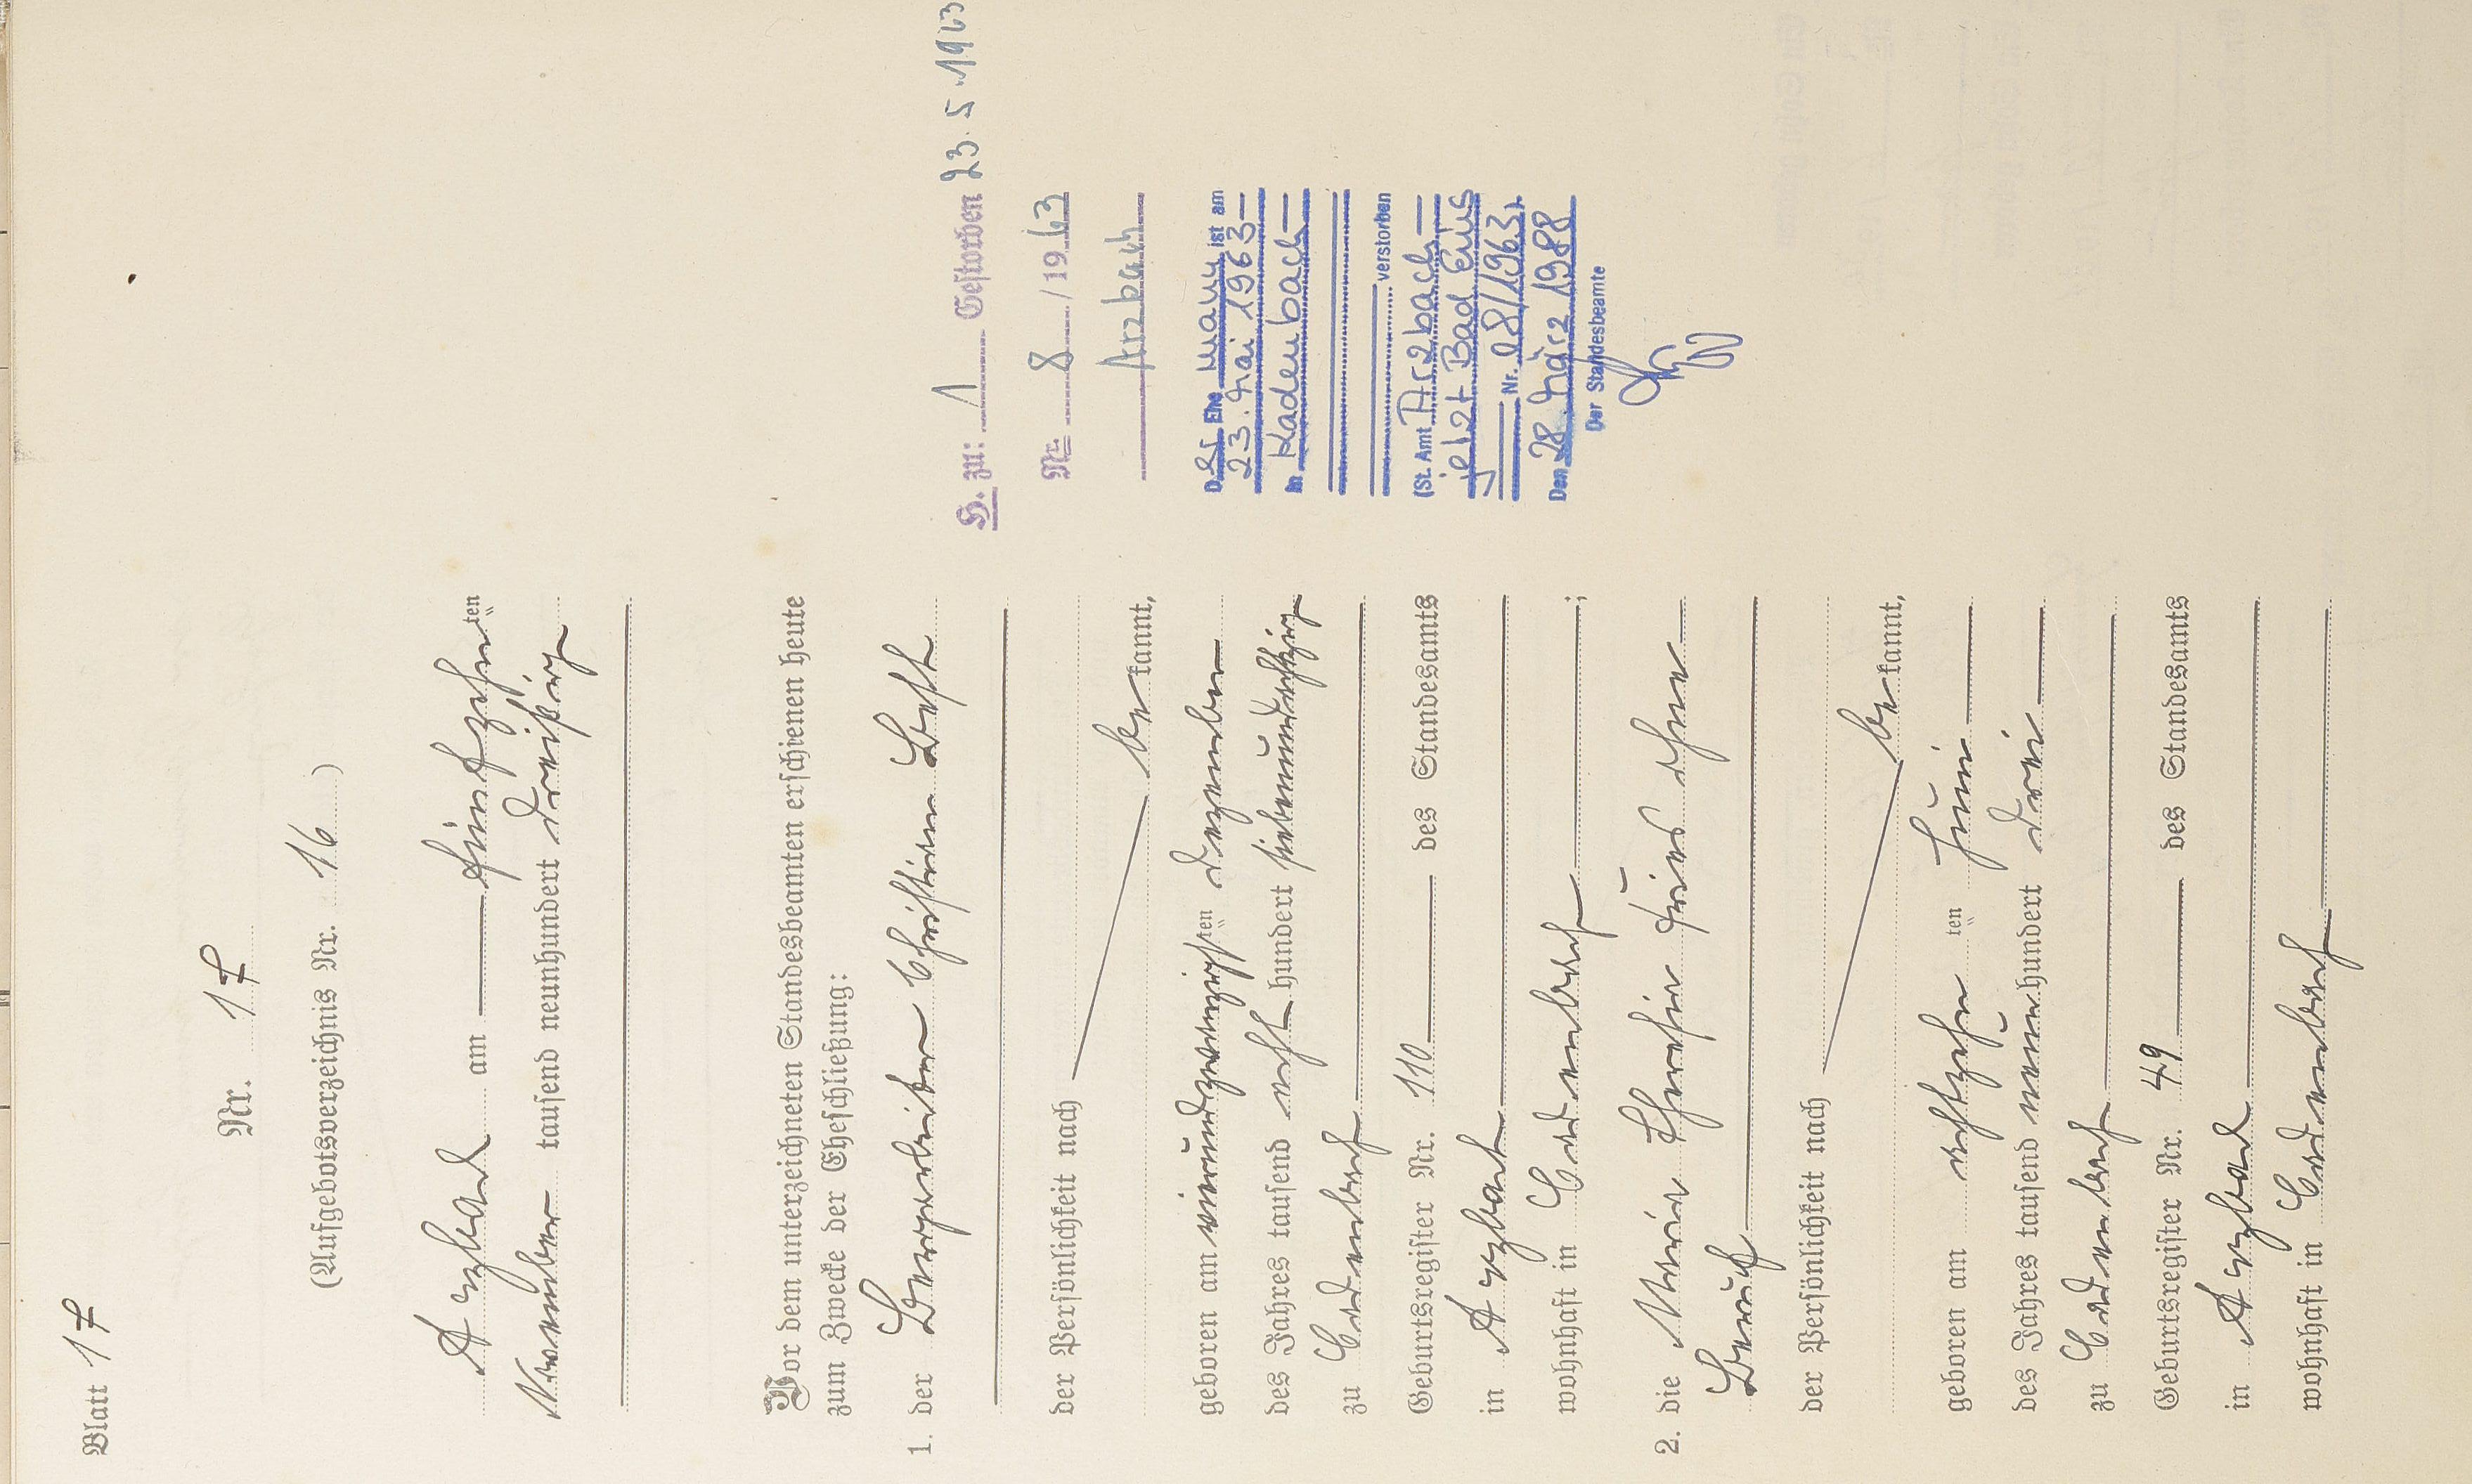 Blatt 17
Nr. 17
(Aufgebotsverzeichnis Nr. 16)
Arzbach am fünfzehnten
November tausend neunhundert dreißig
Vor dem unterzeichneten Standesbeamten erschienen heute
zum Zwecke der Eheschließung:
1. der Bergarbeiter Christian
der Persönlichkeit nach
bekannt,
geboren am vierundzwanzigsten Dezember
des Jahres tausend acht hundert siebenundachtzig
zu Cadenbach
Geburtsregister Nr. 110 des Standesamts
in Arzbach
wohnhaft in Cadenbach ;
2. die Maria Theresia ohne
Beruf
der Persönlichkeit nach
bekannt,
geboren am achtzehnten Juni
des Jahres tausend neunhundert drei
zu Cadenbach
Geburtsregister Nr. 49 des Standesamts
in Arzbach
wohnhaft in Cadenbach
H. zu: 1 Gestorben 23.5.1963
Nr. 8 / 1963
Arzbach
Der Ehemann ist am
23. Mai 1963
in Kadenbach
verstorben
(St. Amt Arzbach
jetzt Bad Ems
Nr. 08/1963).
Den 28. März 1988
Der Standesbeamte